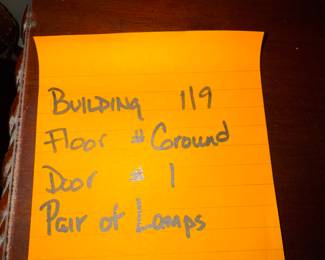 Building 119
Floor # Ground
Door # 1
Pair of Lamps